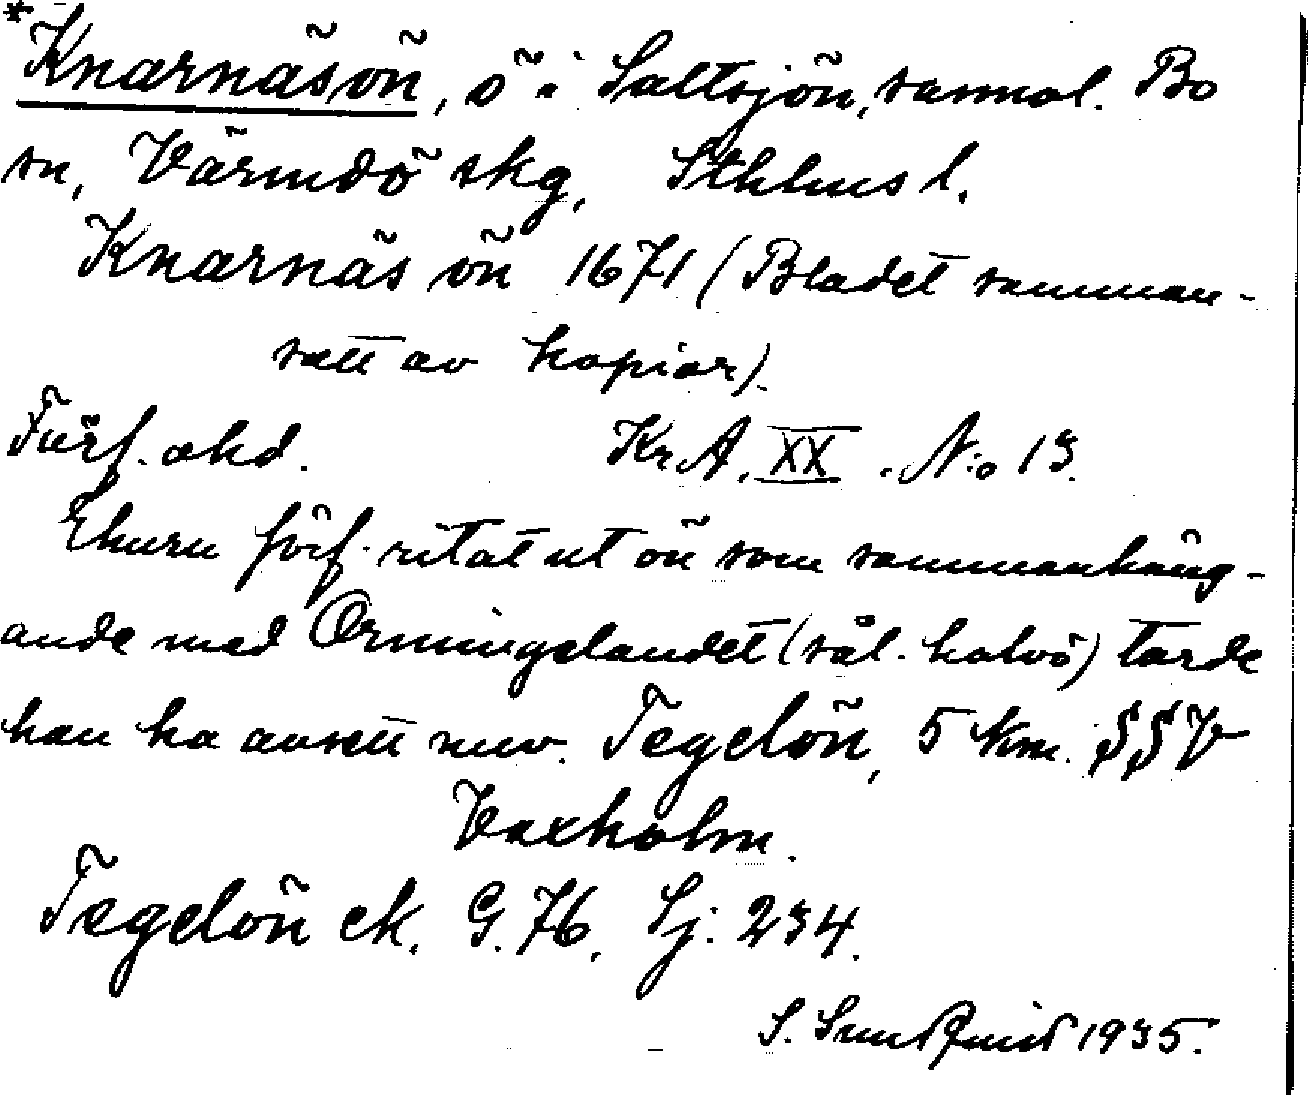 *Knarnäsön, ö i Saltsjön, sannol. Bo
sn, Värmdö skg, Sthlms l.
Knarnäs ön 1671 (Bladet samman-
satt av kopior).
Förf. okd. Kr.A. XX. No 13.
Ehuru förf. ritat ut ön som sammanhäng-
ande med Ormingelandet (sål. halvö) torde
han ha avsett nuv. Tegelön, 5 km. SSV
Vaxholm.
Tegelön ek. G. 76. Sj. 234.
S. Sundquist 1935.